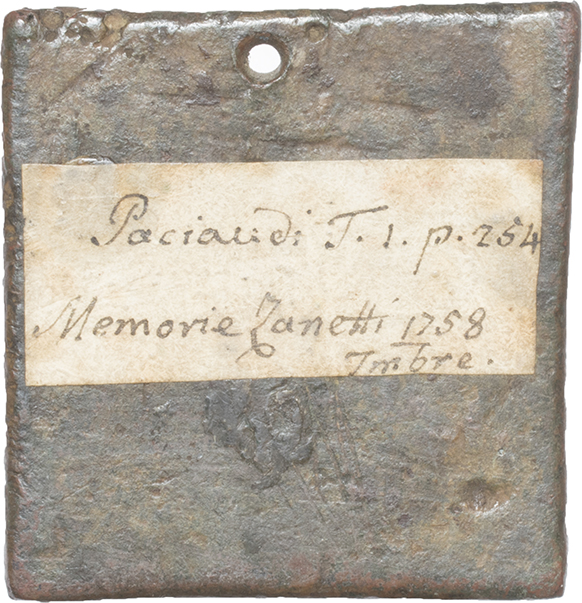 Paciaudi T. 1. p. 254
Memorie Zanetti 1758
7mbre.